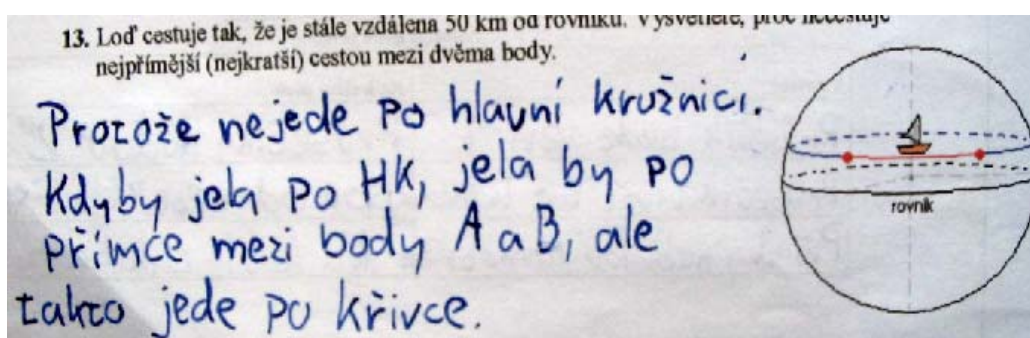 13. Loď cestuje tak, že je stále vzdálena 50 km od rovníku. Vysvětlete, proč necestuje
nejpřímější (nejkratší) cestou mezi dvěma body.
Protože nejede po hlavní kružnici.
Kdyby jela po HK, jela by po
přímce mezi body A a B, ale
takto jede po křivce.
rovník